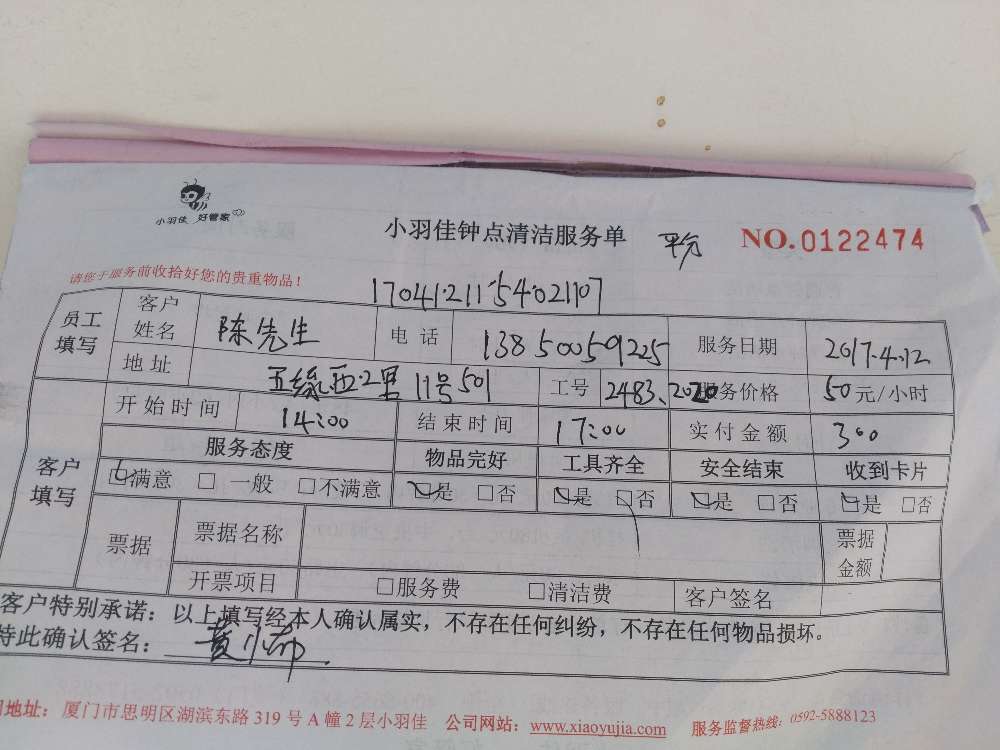 小羽佳 好管家
小羽佳钟点清洁服务单 平分 NO.0122474
请您于服务前收拾好您的贵重物品!
1704121154021107
员工填写 客户姓名 陈先生 电话 13850059225 服务日期 2017.4.12
地址 五缘西2里11号501 工号 2483、2020 服务价格 50元/小时
客户填写 开始时间 14:00 结束时间 17:00 实付金额 300
服务态度 物品完好 工具齐全 安全结束 收到卡片
☑满意 □一般 □不满意 ☑是 □否 ☑是 □否 ☑是 □否 ☑是 □否
票据 票据名称 票据金额
开票项目 □服务费 □清洁费 客户签名
客户特别承诺:以上填写经本人确认属实,不存在任何纠纷,不存在任何物品损坏。
特此确认签名:
地址:厦门市思明区湖滨东路319号A幢2层小羽佳 公司网站:www.xiaoyujia.com 服务监督热线:0592-5888123